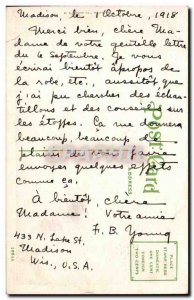 Madison, le 1 Octobre, 1918
Merci bien, chère Ma-
dame de votre gentille lettre
du 6 Septembre. Je vous
écrirai bientôt àpropos de
la robe, etc., aussitôt que
j'ai pu chercher des échan-
tillons et des conseils sur
les étoffes. Ça me donnera
beaucoup, beaucoup de
plaisir de vous faire
envoyer quelques effets
comme ça.
À bientôt, chère
Madame! Votre amie
F. B. Young
433 N. Lake St.
Madison
Wis., U.S.A.
Post Card
ADDRESS
PLACE
STAMP HERE
DOMESTIC
ONE CENT
FOREIGN
TWO CENTS